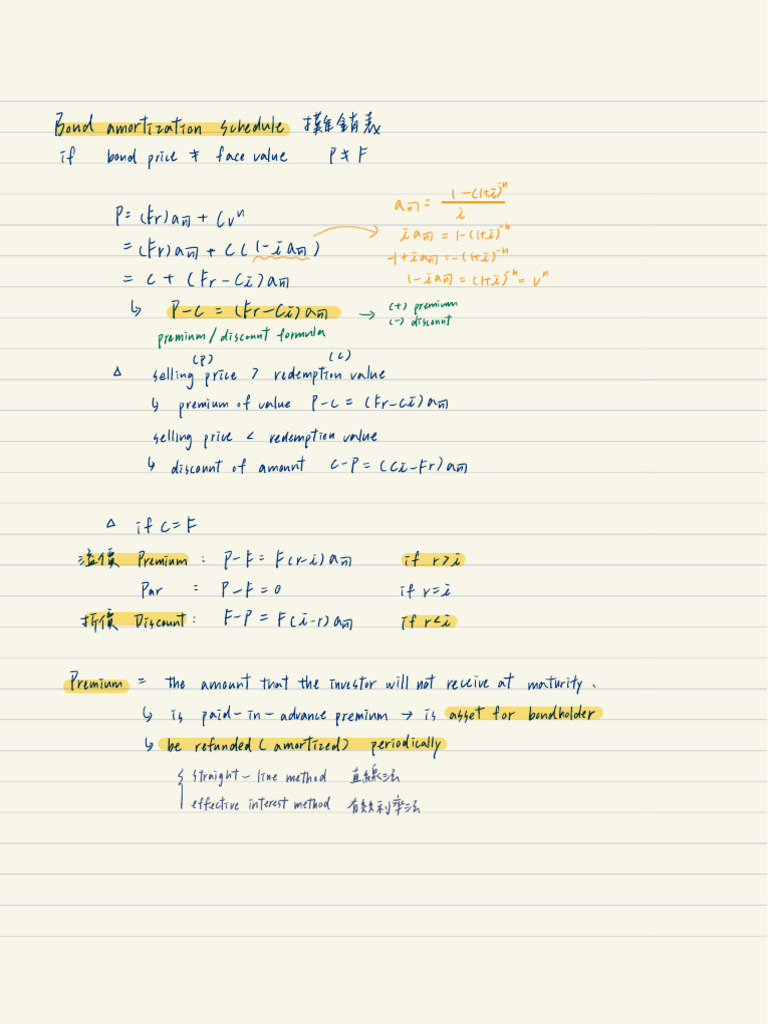 Bond amortization schedule 攤銷表
if bond price ≠ face value P ≠ F
P = (Fr)a_n̅| + Cvⁿ
= (Fr)a_n̅| + C(1-i a_n̅|)
= C + (Fr-Ci)a_n̅|
↳ P-C = (Fr-Ci)a_n̅| → (+) premium
(-) discount
premium / discount formula
a_n̅| = (1-(1+i)⁻ⁿ)/i
i a_n̅| = 1-(1+i)⁻ⁿ
-1+i a_n̅| = -(1+i)⁻ⁿ
1-i a_n̅| = (1+i)⁻ⁿ = vⁿ
(P) (C)
△ selling price > redemption value
↳ premium of value P-C = (Fr-Ci)a_n̅|
selling price < redemption value
↳ discount of amount C-P = (Ci-Fr)a_n̅|
△ if C=F
溢價 Premium : P-F = F(r-i)a_n̅| if r>i
Par = P-F=0 if r=i
折價 Discount : F-P = F(i-r)a_n̅| if r<i
Premium = the amount that the investor will not receive at maturity.
↳ is paid-in-advance premium → is asset for bondholder
↳ be refunded (amortized) periodically
straight-line method 直線法
effective interest method 有效利率法